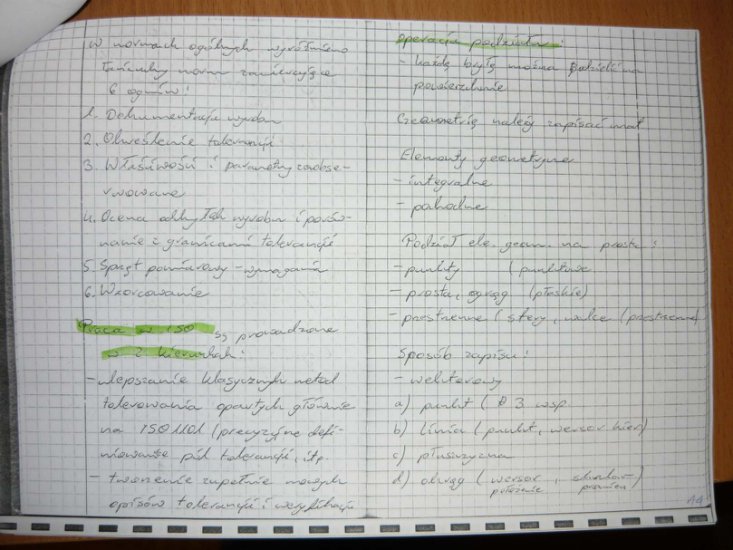 W normach ogólnych wyróżniono
łańcuchy norm zawierające
6 ogniw:
1. Dokumentacja wyrobu
2. Określenie tolerancji
3. Właściwości i parametry zaobse-
rwowane
4. Ocena odchyłek wyrobu i porów-
nanie z granicami tolerancji
5. Sprzęt pomiarowy - wymagania
6. Wzorcowanie
Praca w ISO są prowadzone
w 2 kierunkach:
- ulepszanie klasycznych metod
tolerowania opartych głównie
na ISO 1101 (precyzyjne defi-
niowanie pól tolerancji, itp
- tworzenie zupełnie nowych
opisów tolerancji i weryfikacji
operacja podziału:
- każdą bryłę można podzielić na
powierzchnie
Geometrię należy zapisać mat
Elementy geometryczne
- integralne
- pochodne
Podział ele. geom. na prostu :
- punkty (punktowe
- prosta, okrąg (płaskie)
- przestrzenne (sfery, walce (przestrzenne)
Sposób zapisu:
- wektorowy
a) punkt ( 3 wsp
b) linia (punkt, wersor kier)
c) płaszczyzna
d) okrąg (wersor,
położenie promień